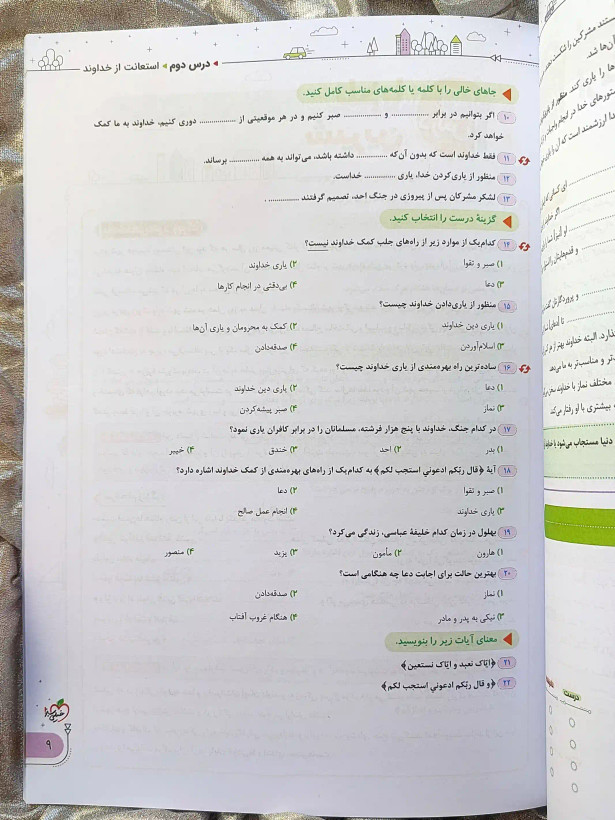 درس دوم استعانت از خداوند
جاهای خالی را با کلمه یا کلمه‌های مناسب کامل کنید.
۱۰ اگر بتوانیم در برابر .................. و .................. صبر کنیم و در هر موقعیتی از .................. دوری کنیم، خداوند به ما کمک
خواهد کرد.
۱۱ فقط خداوند است که بدون آن‌که .............. داشته باشد، می‌تواند به همه .............. برساند.
۱۲ منظور از یاری‌کردن خدا، یاری .............. خداست.
۱۳ لشکر مشرکان پس از پیروزی در جنگ احد، تصمیم گرفتند .............. .
گزینهٔ درست را انتخاب کنید.
۱۴ کدام‌یک از موارد زیر از راه‌های جلب کمک خداوند نیست؟
۱) صبر و تقوا ۲) یاری خداوند
۳) دعا ۴) بی‌دقتی در انجام کارها
۱۵ منظور از یاری‌دادن خداوند چیست؟
۱) یاری دین خداوند ۲) کمک به محرومان و یاری آن‌ها
۳) اسلام‌آوردن ۴) صدقه‌دادن
۱۶ ساده‌ترین راه بهره‌مندی از یاری خداوند چیست؟
۱) دعا ۲) یاری دین خداوند
۳) نماز ۴) صبر پیشه‌کردن
۱۷ در کدام جنگ، خداوند با پنج هزار فرشته، مسلمانان را در برابر کافران یاری نمود؟
۱) بدر ۲) احد ۳) خندق ۴) خیبر
۱۸ آیهٔ ﴿قال ربّکم ادعوني استجب لکم﴾ به کدام‌یک از راه‌های بهره‌مندی از کمک خداوند اشاره دارد؟
۱) صبر و تقوا ۲) دعا
۳) یاری خداوند ۴) انجام عمل صالح
۱۹ بهلول در زمان کدام خلیفهٔ عباسی، زندگی می‌کرد؟
۱) هارون ۲) مأمون ۳) یزید ۴) منصور
۲۰ بهترین حالت برای اجابت دعا چه هنگامی است؟
۱) نماز ۲) صدقه‌دادن
۳) نیکی به پدر و مادر ۴) هنگام غروب آفتاب
معنای آیات زیر را بنویسید.
۲۱ ﴿ایّاک نعبد و ایّاک نستعین﴾
۲۲ ﴿و قال ربّکم ادعوني استجب لکم﴾
۹
دنیا مستجاب می‌شود یا
درست